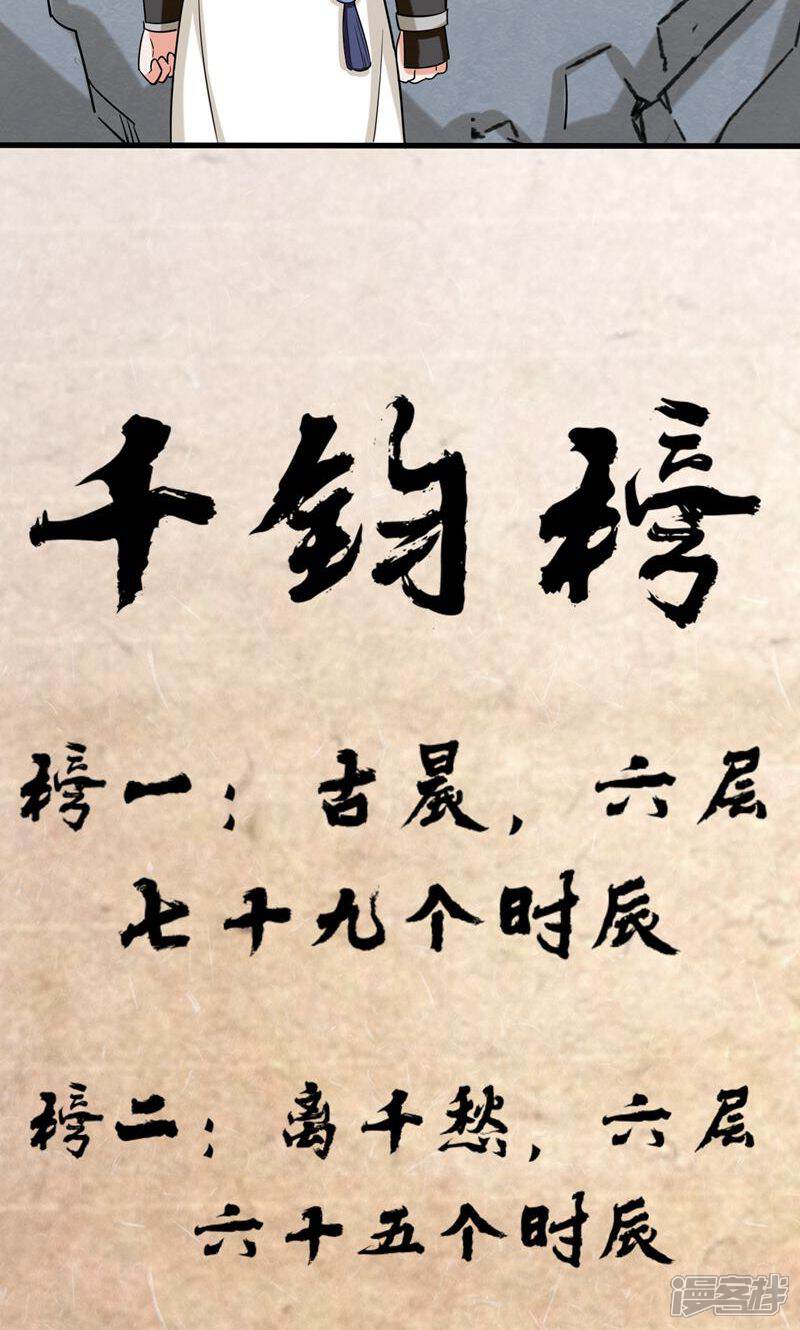 千钧榜
榜一；古晨，六层
七十九个时辰
榜二；离千愁，六层
六十五个时辰
漫客栈